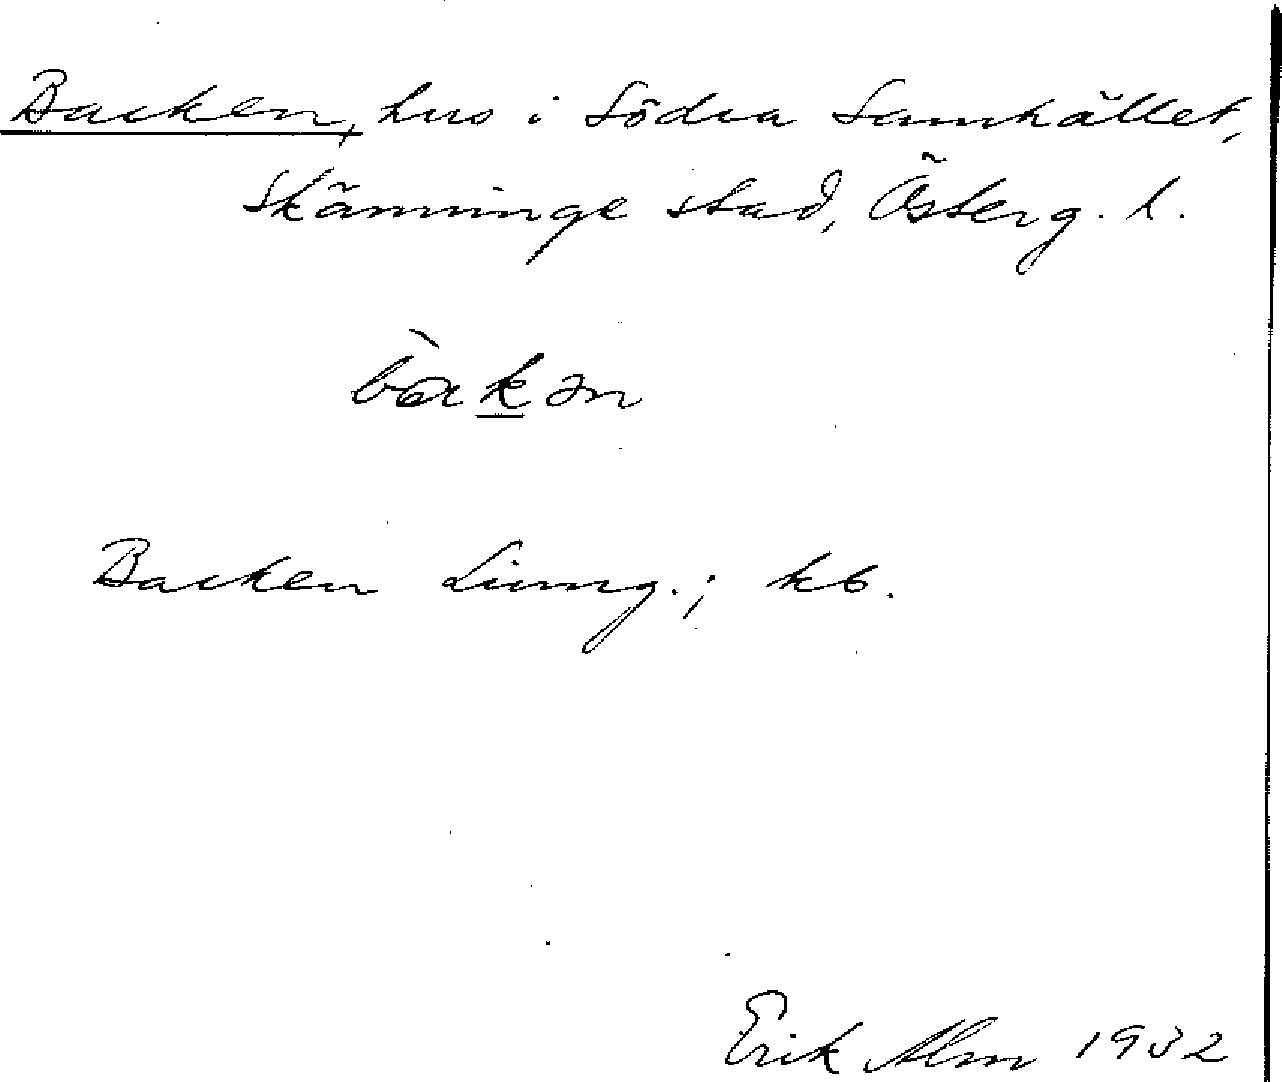 Backen, hus i Södra Samhället,
Skänninge stad, Österg. l.
bàkən
Backen Liung.; kb.
Erik Alm 1932